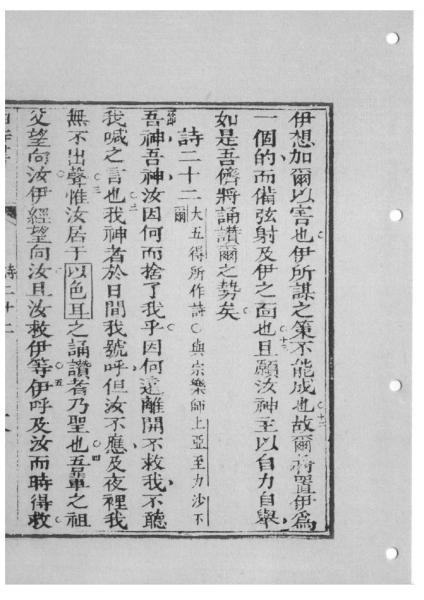 伊想加爾以害也伊所謀之策不能成也十二故爾將置伊為
一個的而備弦射及伊之面也十三且願汝神至以自力自舉
如是吾儕將誦讚爾之勢矣
詩二十二 大五得所作詩○與宗樂師上亞至力沙下
爾
吾神吾神汝因何而捨了我乎因何遠離開不救我不聽
我喊之言也二我神者於日間我號呼但汝不應及夜裡我
無不出聲三惟汝居于以色耳之誦讚者乃聖也四吾輩之祖
父望向汝伊經望向汝且汝救伊等五伊呼及汝而時得救
詩二十二